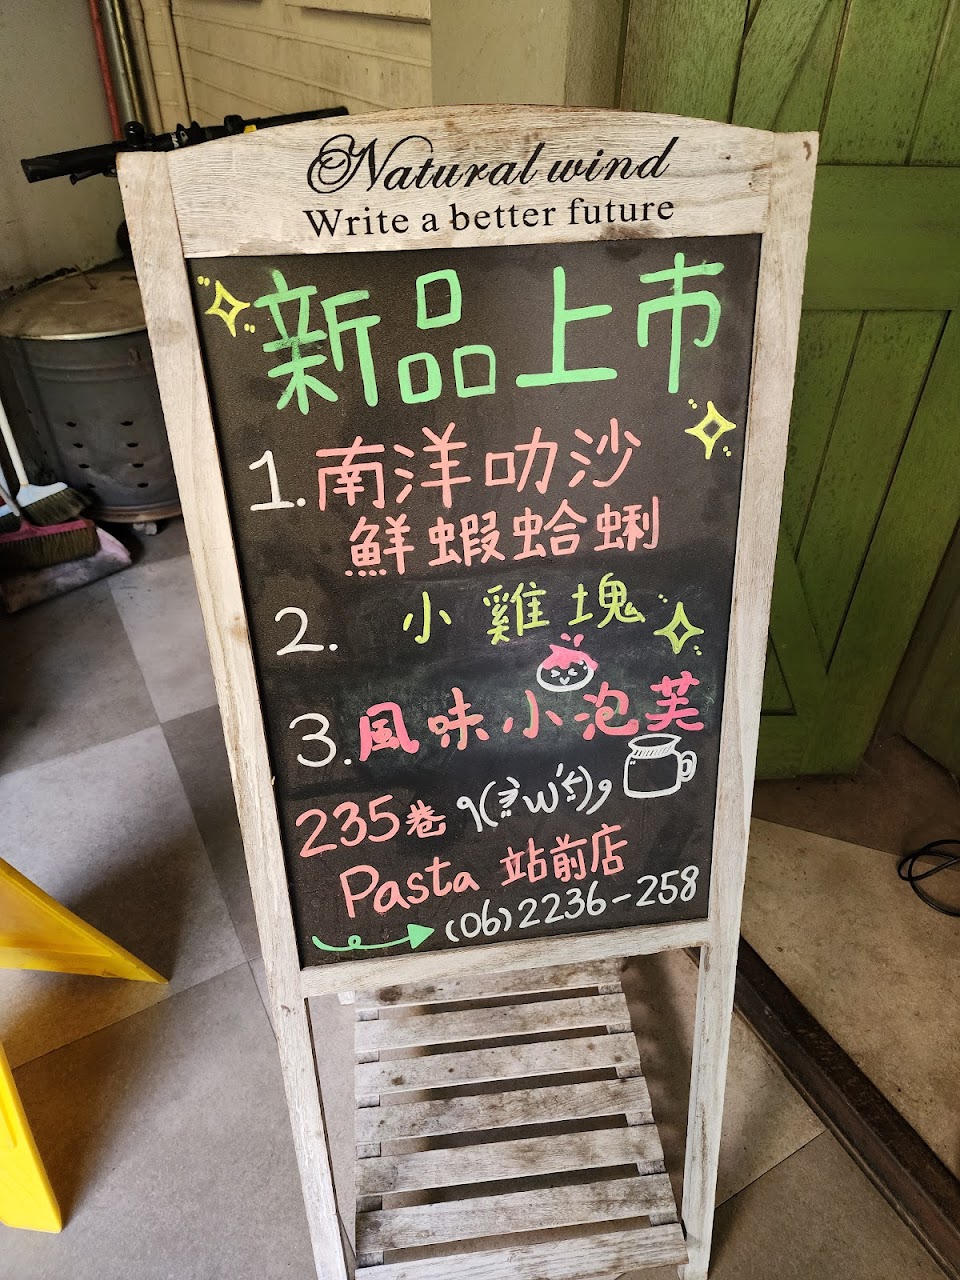 Natural wind
Write a better future
新品上市
1. 南洋叻沙
鮮蝦蛤蜊
2. 小雞塊
3. 風味小泡芙
235巷
Pasta 站前店
(06)2236-258